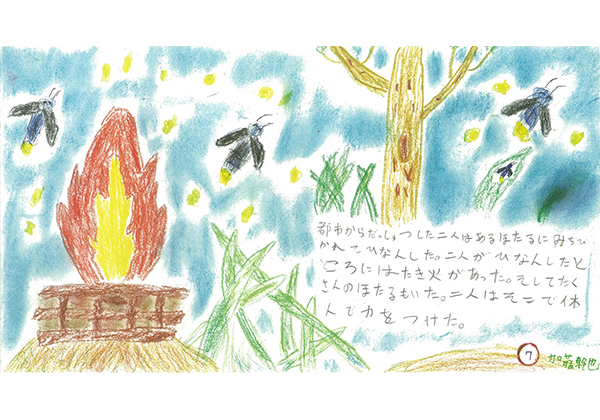 都市からだっしゅつした二人はあるほたるにみちび
かれてひなんした。二人がひなんしたと
ころにはたき火があった。そしてたく
さんのほたるもいた。二人はそこで休
んで力をつけた。
7
加藤幹也